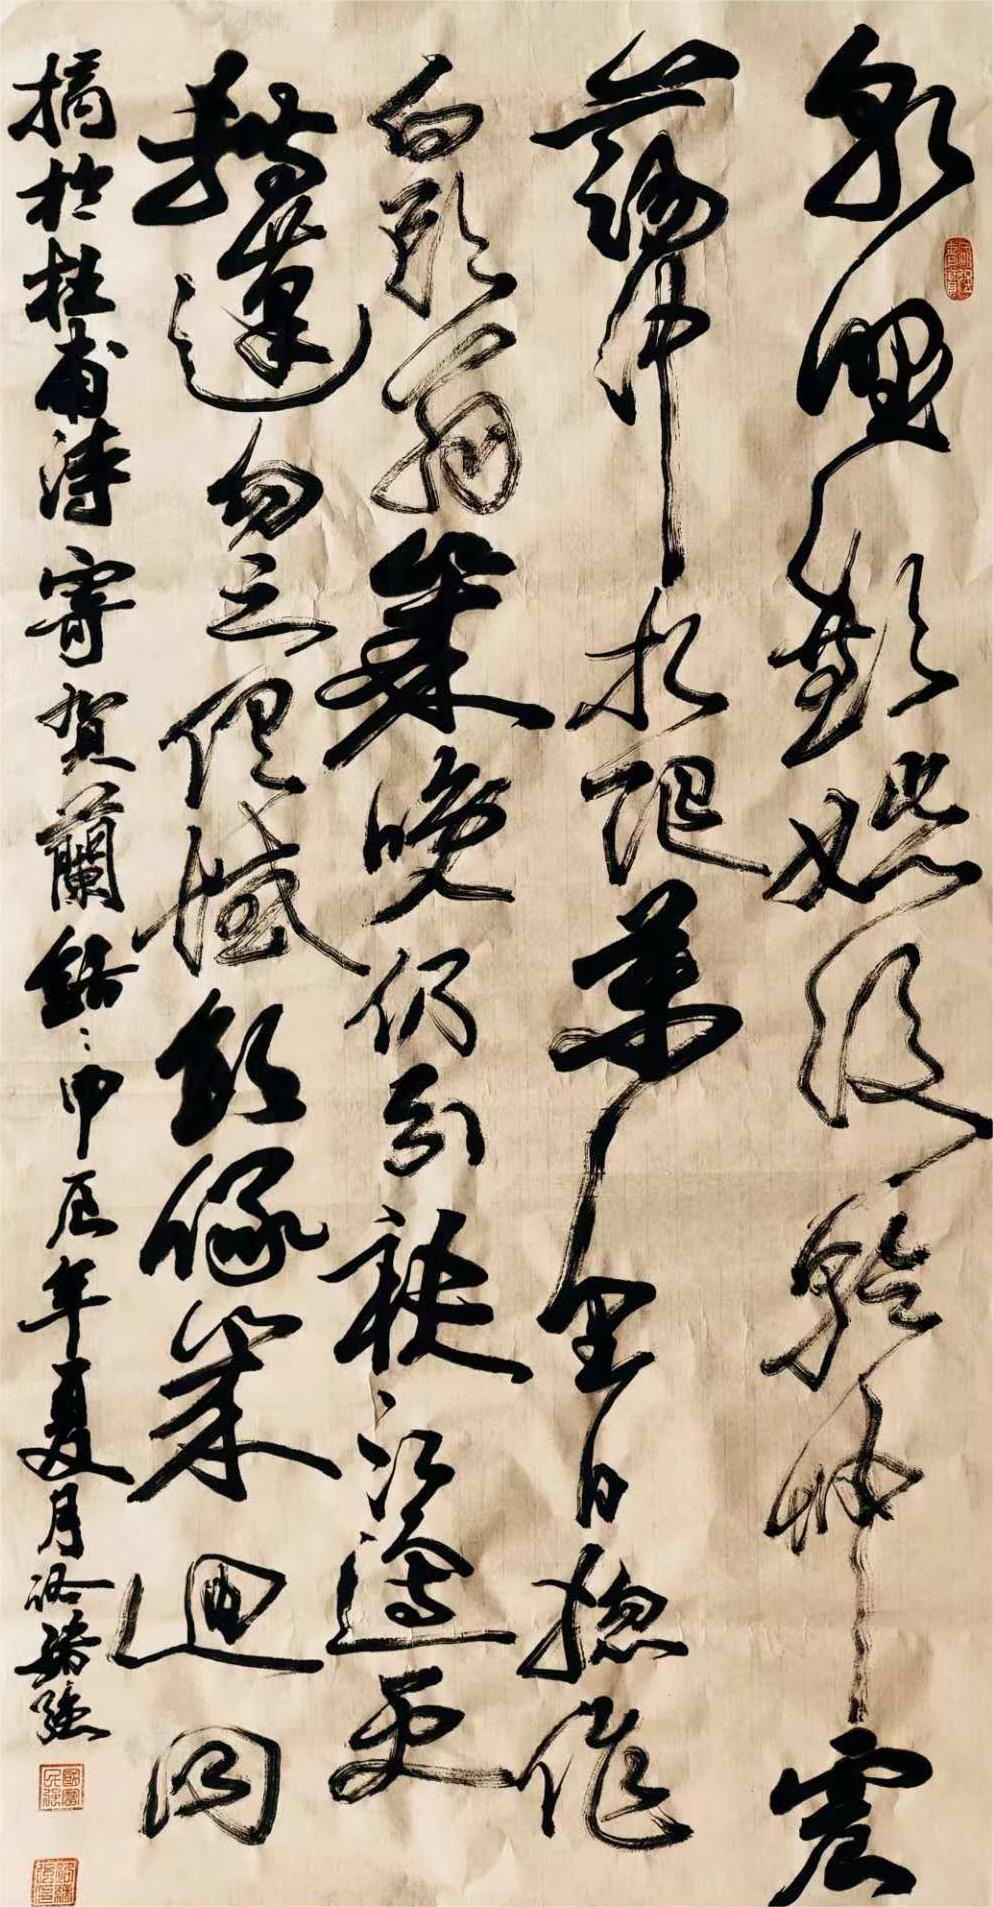 朝野歡娛後乾坤震
蕩中相隨萬里日總作
白頭翁歲晚仍分袂江邊更
轉蓬勿云俱域飲啄幾迴同
摘於杜甫詩寄賀蘭銛甲辰年夏月洛緒強